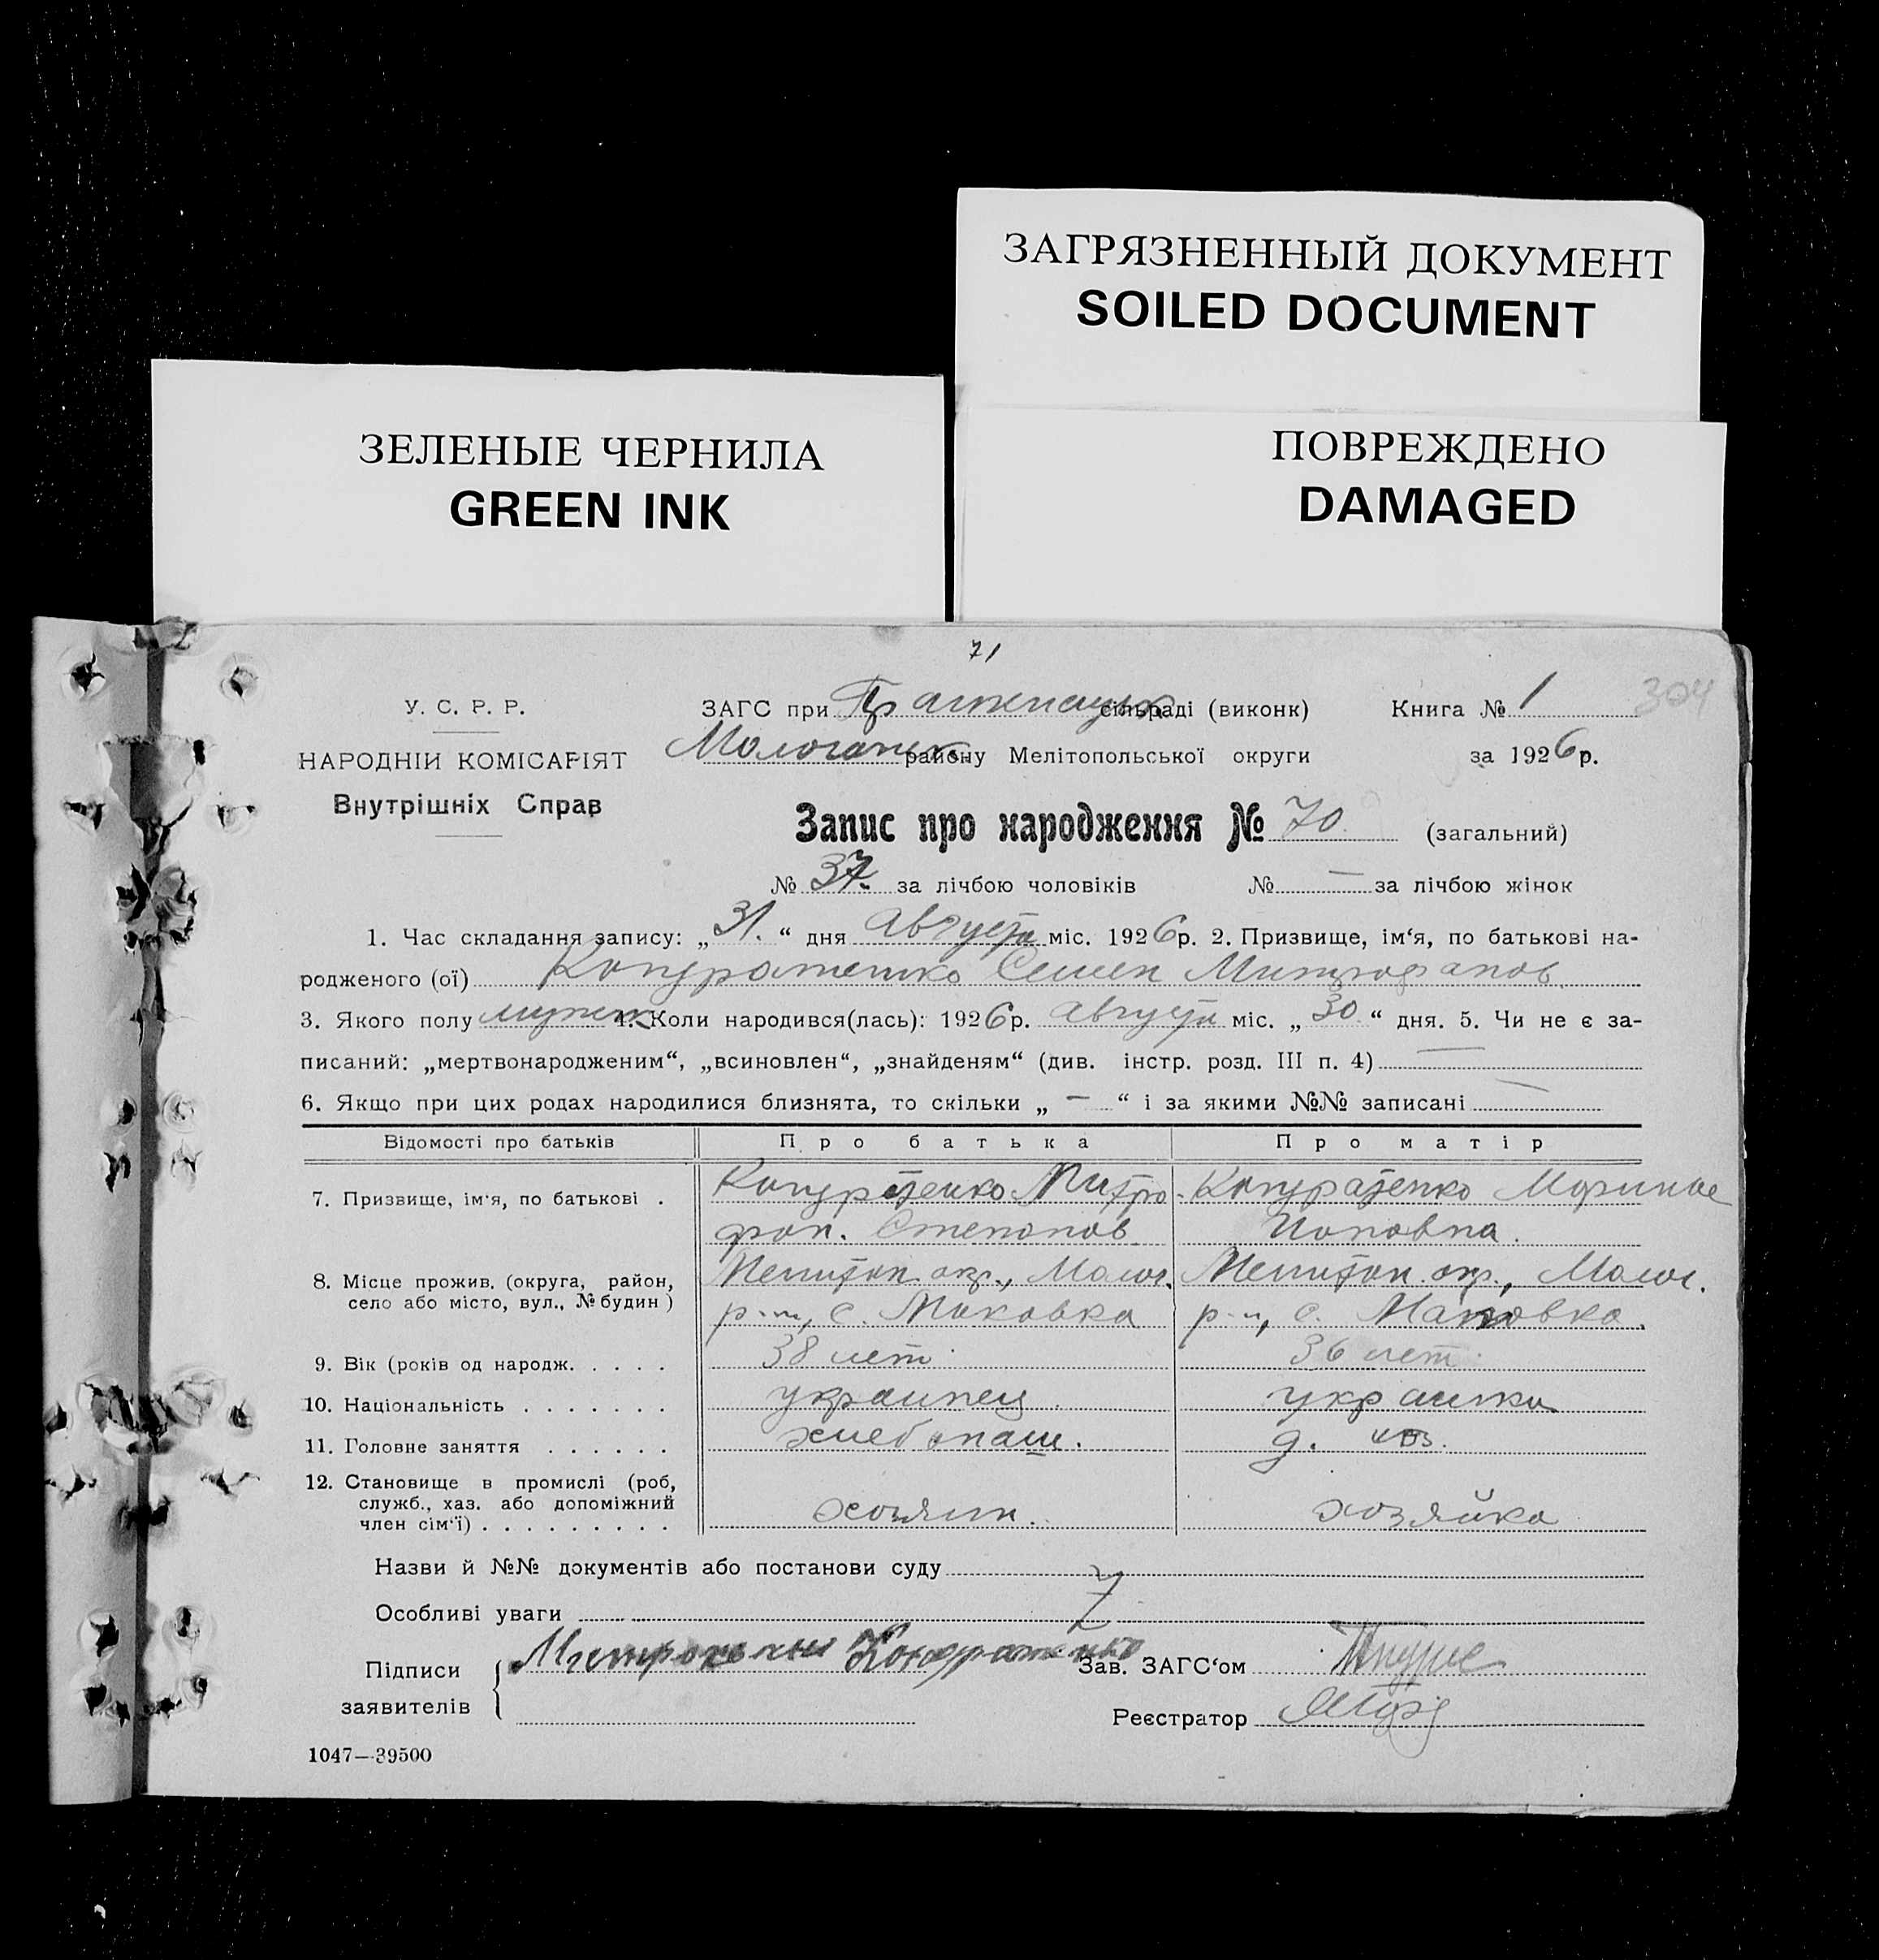 ЗАГРЯЗНЕННЫЙ ДОКУМЕНТ
SOILED DOCUMENT
ЗЕЛЕНЫЕ ЧЕРНИЛА
GREEN INK
ПОВРЕЖДЕНО
DAMAGED
71
У. С. Р. Р.
НАРОДНІЙ КОМІСАРІЯТ
Внутрішніх Справ
ЗАГС при сільраді (виконк) Книга № 1 304
району Мелітопольської округи за 1926 р.
Запис про народження № 70 (загальний)
№ 37. за лічбою чоловіків № — за лічбою жінок
1. Час складання запису: „31.“ дня Августа міс. 1926 р. 2. Призвище, ім‘я, по батькові на-
родженого (ої) Кондратенко Семен Митрофанов.
3. Якого полу мужск 4. Коли народився(лась): 1926 р. Августа міс. „30“ дня. 5. Чи не є за-
писаний: „мертвонародженим“, „всиновлен“, „знайденям“ (див. інстр. розд. III п. 4) —
6. Якщо при цих родах народилися близнята, то скільки „ — “ і за якими №№ записані —
Відомості про батьків Про батька Про матір
7. Призвище, ім‘я, по батькові . Кондратенко Митро- Кондратенко
фан. Степанов.
8. Місце прожив. (округа, район, Мелитоп. окр., Молоч. Мелитоп. окр., Молоч.
село або місто, вул., № будин) р-н, с. р-н, с.
9. Вік (років од народж. . . . . 38 лет. 36 лет.
10. Національність . . . . . . . украинец украинка
11. Головне заняття . . . . . . хлебопаш. д. хоз.
12. Становище в промислі (роб,
служб., хаз. або допоміжний
член сім‘ї) . . . . . . . . . хозяин. хозяйка
Назви й №№ документів або постанови суду
Особливі уваги
Підписи Митрофан Кондратенко Зав. ЗАГС‘ом
заявителів Реєстратор
1047—39500